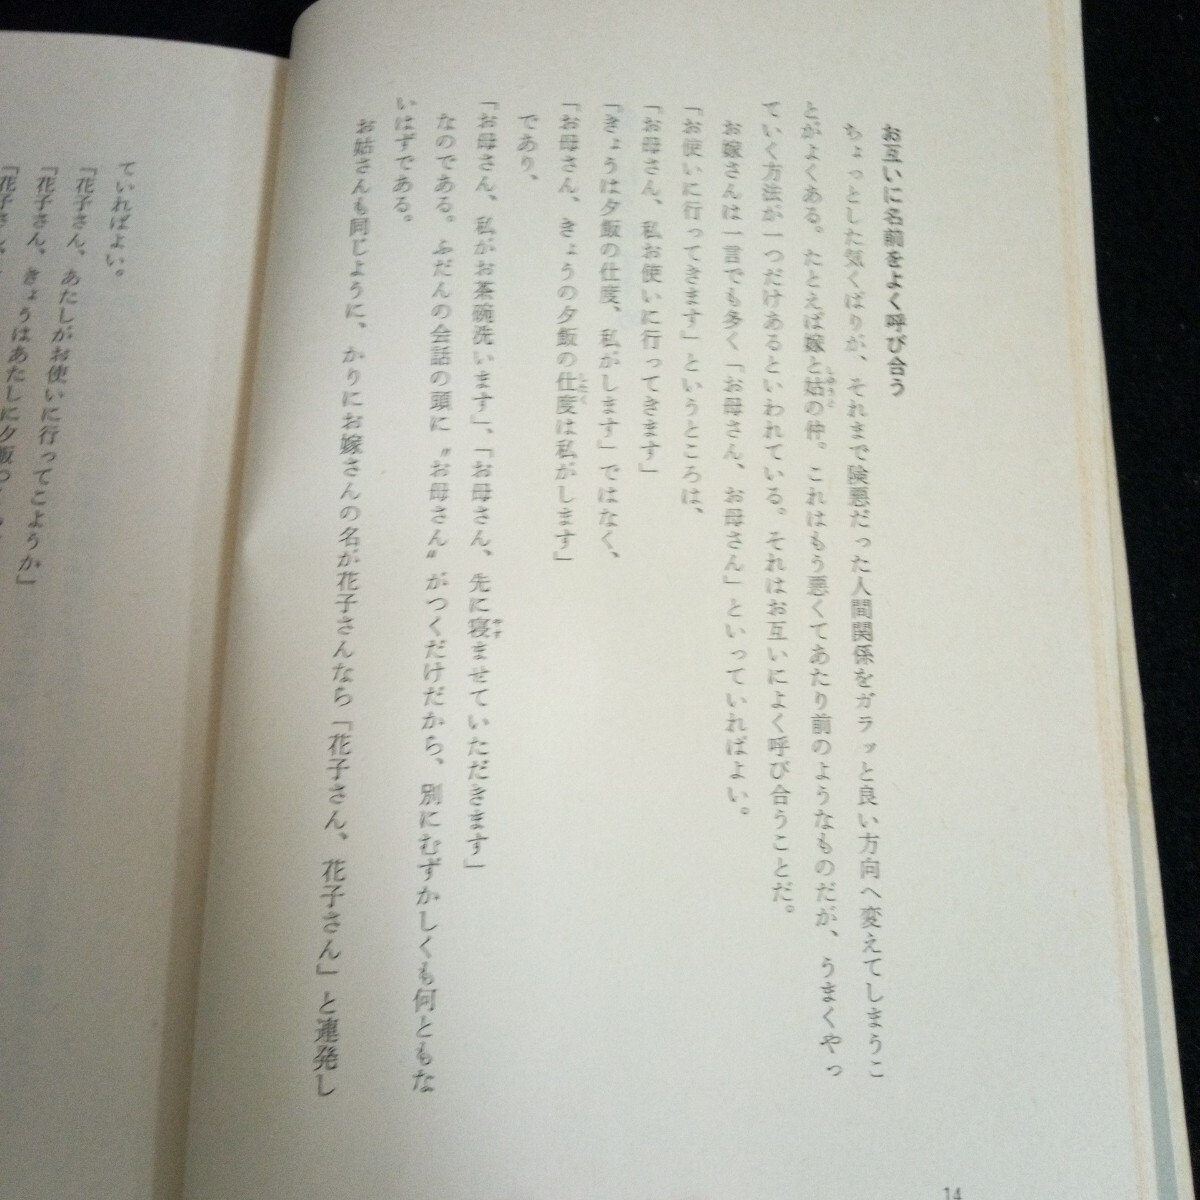 お互いに名前をよく呼び合う
ちょっとした気くばりが、それまで険悪だった人間関係をガラッと良い方向へ変えてしまうこ
とがよくある。たとえば嫁と姑の仲。これはもう悪くてあたり前のようなものだが、うまくやっ
ていく方法が一つだけあるといわれている。それはお互いによく呼び合うことだ。
お嫁さんは一言でも多く「お母さん、お母さん」といっていればよい。
「お使いに行ってきます」というところは、
「お母さん、私お使いに行ってきます」
「きょうは夕飯の仕度、私がします」ではなく、
「お母さん、きょうの夕飯の仕度は私がします」
であり、
「お母さん、私がお茶碗洗います」、「お母さん、先に寝ませていただきます」
なのである。ふだんの会話の頭に〝お母さん〟がつくだけだから、別にむずかしくも何ともな
いはずである。
お姑さんも同じように、かりにお嫁さんの名が花子さんなら「花子さん、花子さん」と連発し
14
ていればよい。
「花子さん、あたしがお使いに行ってこようか」
「花子さん、きょうはあたしに夕飯つ